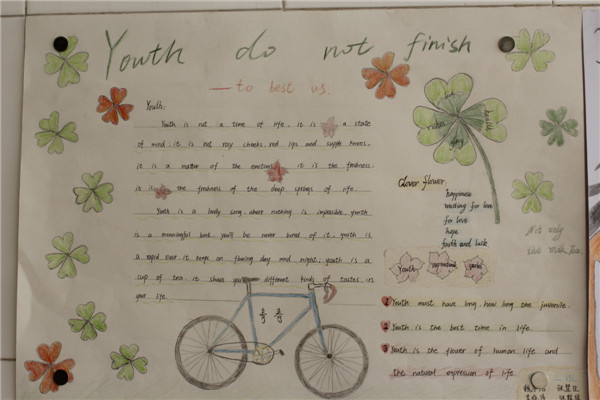 Youth do not finish
— to best us.
Youth:
Youth is not a time of life. it is a state
of mind. it is not rosy cheeks. red lips and supple knees.
it is a matter of the emotions it is the freshness.
it is the freshness of the deep springs of life.
Youth is a lovely song. where nothing is impossible. youth
is a meaningful book. you'll never bored of it. youth is
a rapid river it keeps on flowing day and night. youth is a
cup of tea. it shows you different kinds of tastes in
your life.
health
glory
Clover flower.
happiness
waiting for love
for love
hope
faith and luck
Youth
1 Youth must have long. how long the juvenile.
2 Youth is the best time in life.
3 Youth is the flower of human life and
the natural expression of life.
Not only